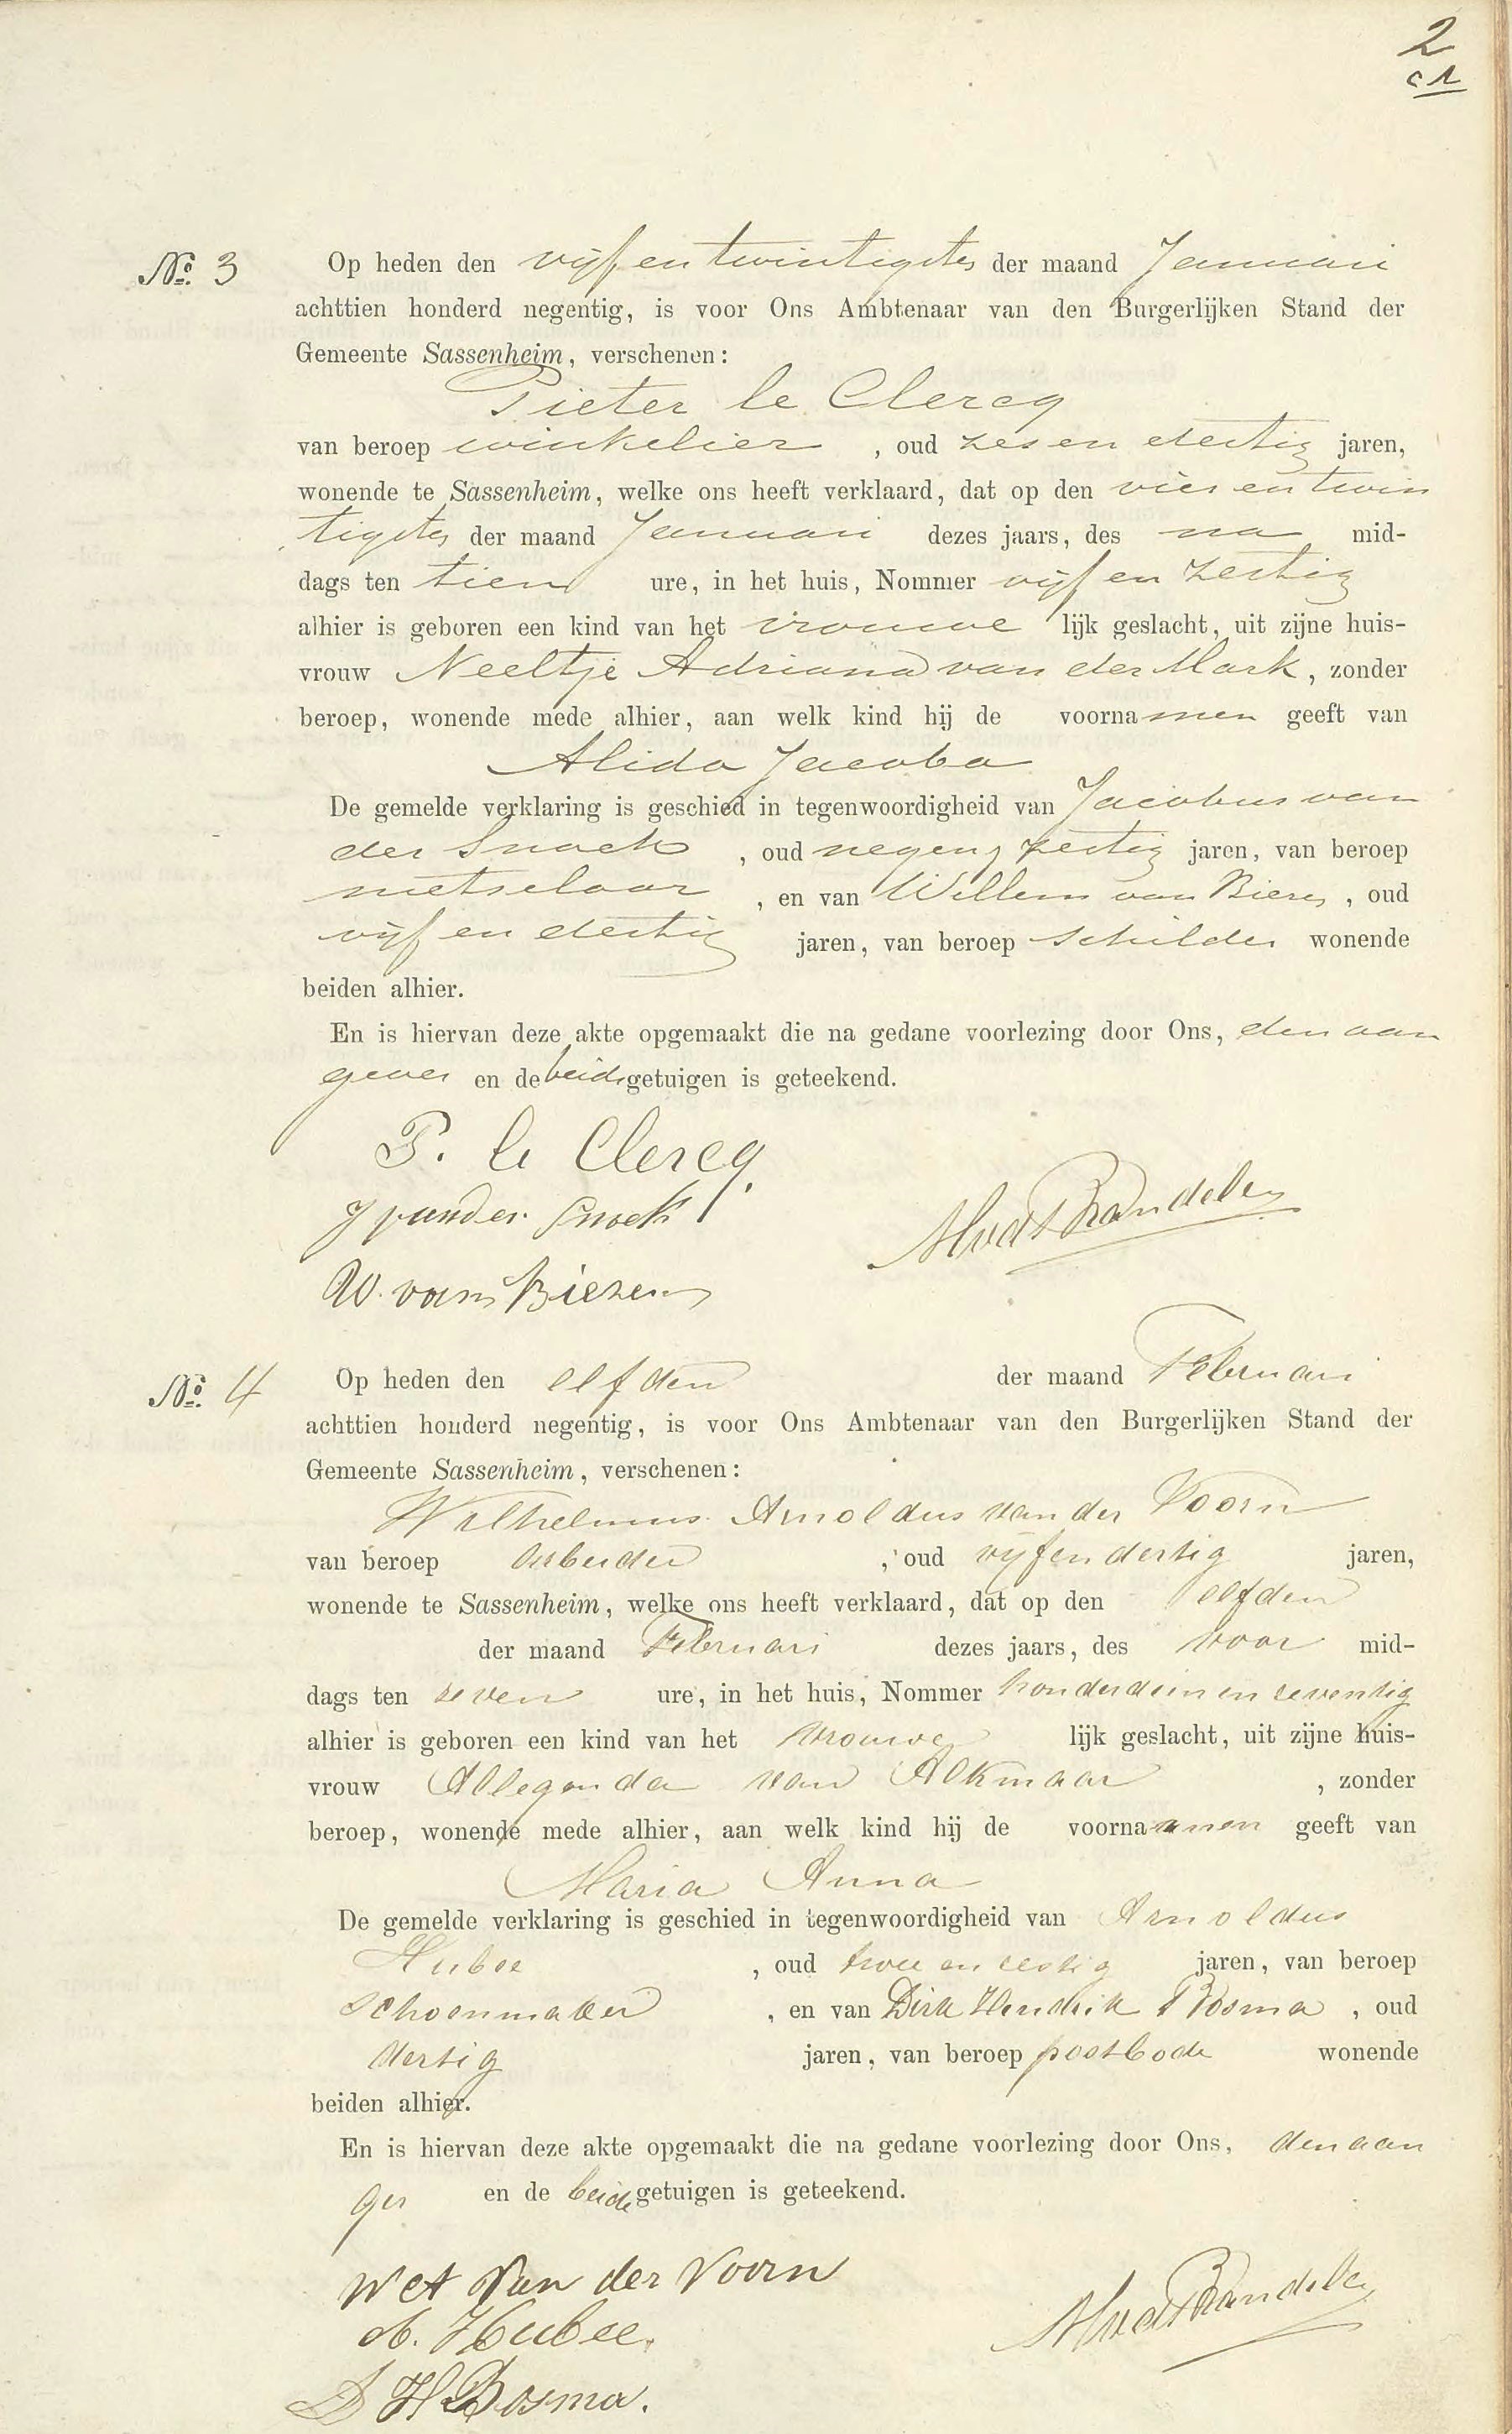 2
No. 3 Op heden den vijf en twintigsten der maand Januari
achttien honderd negentig, is voor Ons Ambtenaar van den Burgerlijken Stand der
Gemeente Sassenheim, verschenen:
Pieter le Clercq
van beroep winkelier, oud zes en dertig jaren,
wonende te Sassenheim, welke ons heeft verklaard, dat op den vier en twin
tigsten der maand Januari dezes jaars, des na mid-
dags ten tien ure, in het huis, Nommer vijf en zestig
alhier is geboren een kind van het vrouwe lijk geslacht, uit zijne huis-
vrouw Neeltje Adriana van der Mark, zonder
beroep, wonende mede alhier, aan welk kind hij de voornamen geeft van
Alida Jacoba
De gemelde verklaring is geschied in tegenwoordigheid van Jacobus van
der Snoek, oud negen zestig jaren, van beroep
metselaar, en van Willem van Biezen, oud
vijf en dertig jaren, van beroep schilder wonende
beiden alhier.
En is hiervan deze akte opgemaakt die na gedane voorlezing door Ons, den aan
gever en de beide getuigen is geteekend.
P. le Clercq.
J van der Snoek
W. van Biezen
No. 4 Op heden den elfden der maand Februari
achttien honderd negentig, is voor Ons Ambtenaar van den Burgerlijken Stand der
Gemeente Sassenheim, verschenen:
Wilhelmus Arnoldus van der Voorn
van beroep Arbeider, oud vijfendertig jaren,
wonende te Sassenheim, welke ons heeft verklaard, dat op den elfden
der maand Februari dezes jaars, des voor mid-
dags ten zeven ure, in het huis, Nommer honderdeenenzeventig
alhier is geboren een kind van het vrouwe lijk geslacht, uit zijne huis-
vrouw Allegonda van Alkmaar, zonder
beroep, wonende mede alhier, aan welk kind hij de voornaamen geeft van
Maria Anna
De gemelde verklaring is geschied in tegenwoordigheid van Arnoldus
Hubee, oud twee en zestig jaren, van beroep
schoenmaker, en van Dirk Hendrik Bosma, oud
dertig jaren, van beroep postbode wonende
beiden alhier.
En is hiervan deze akte opgemaakt die na gedane voorlezing door Ons, den aan
ger en de beide getuigen is geteekend.
W et A van der Voorn
A. Hubee.
D H Bosma.